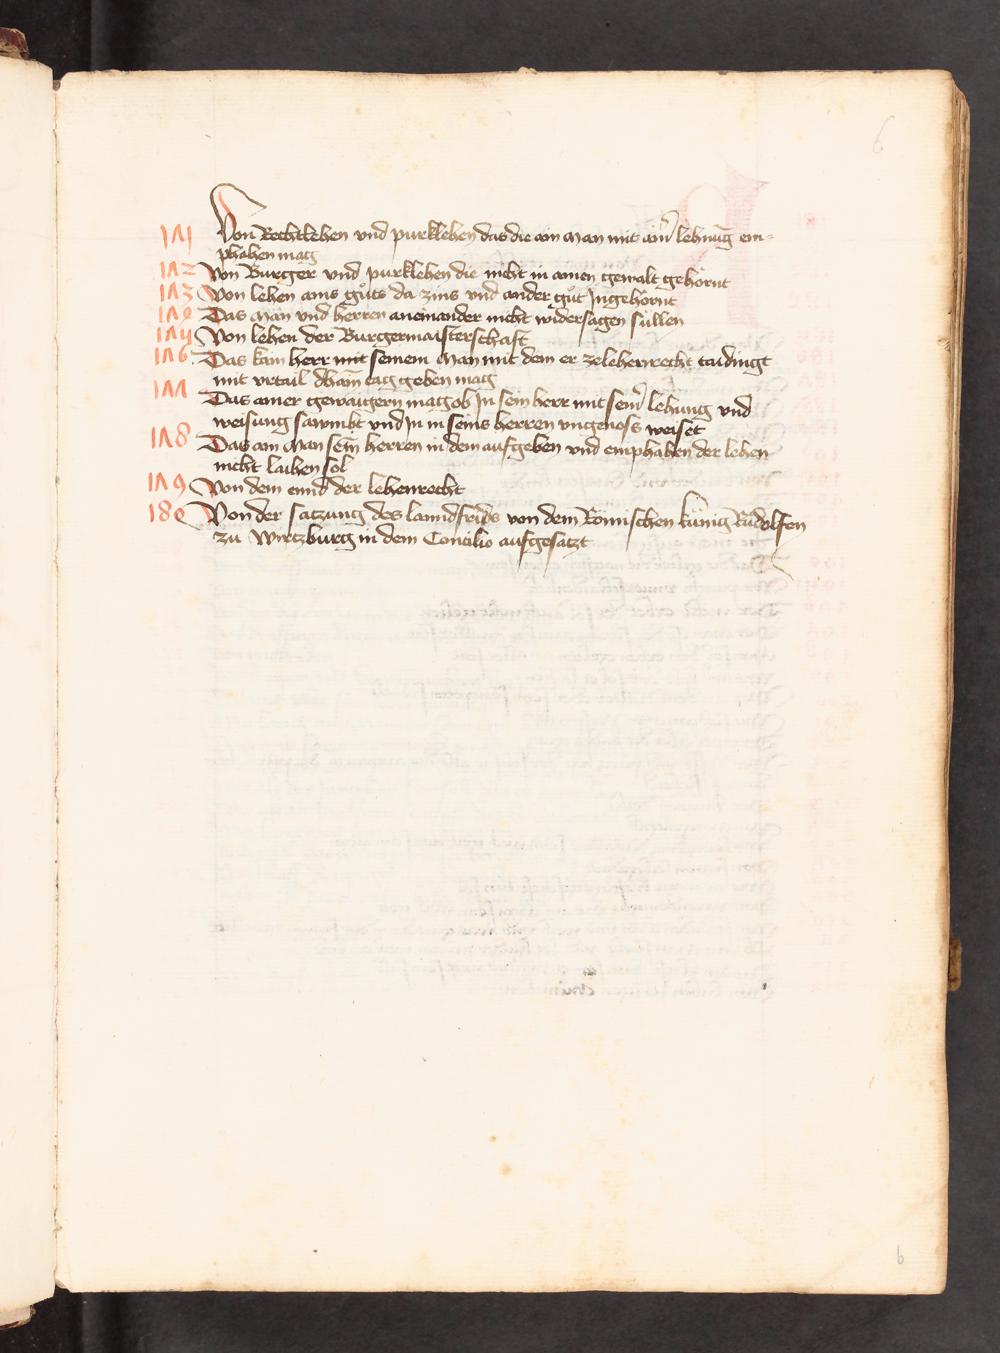 6
171 Von Rechtlehen und purklehen das die ain Man mit ainr lehnung em-
phahen mag
172 Von Burger und purklehen die nicht in ainen gewalt gehörnt
173 Von lehen ains gůts da zins und ander gůt Ingehörnt
174 Das Man und herren aneinander nicht widersagen süllen
175 Von lehen der Burgermaisterschaft
176 Das kain herr mit seinem Man mit dem er zelehenrecht taidingt
mit urtail dhain tag geben mag
177 Das ainer gewaigern mag ob In sein herr mit seinr lehung und
weisung sawmbt und In in seins herren ungenoss weiset
178 Das ain Man seinem herren in dem aufgeben und emphahen der lehen
nicht laihen sol
179 Von dem ennd der lehenrecht
180 Von der satzung des lanndfrids von dem Römischen künig Růdolfen
zu Wirtzburg in dem Concilio aufgesatzt
6